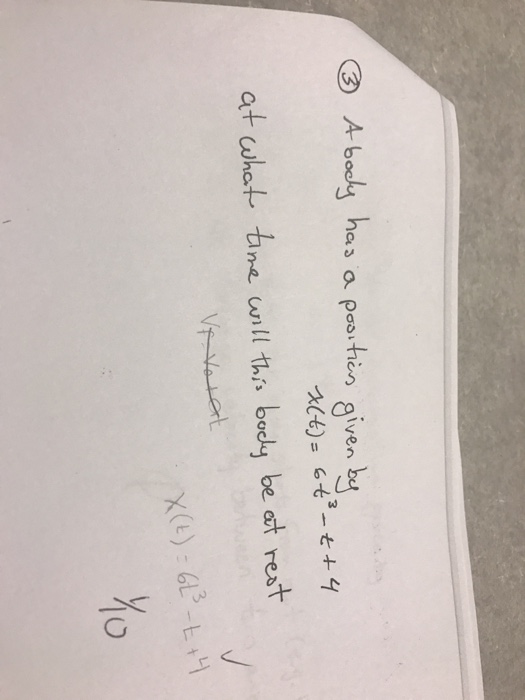 ③ A body has a position given by
x(t) = 6t³ - t + 4
at what time will this body be at rest
Vf=Vo+at
x(t) = 6t³ - t + 4 ✓
1/10